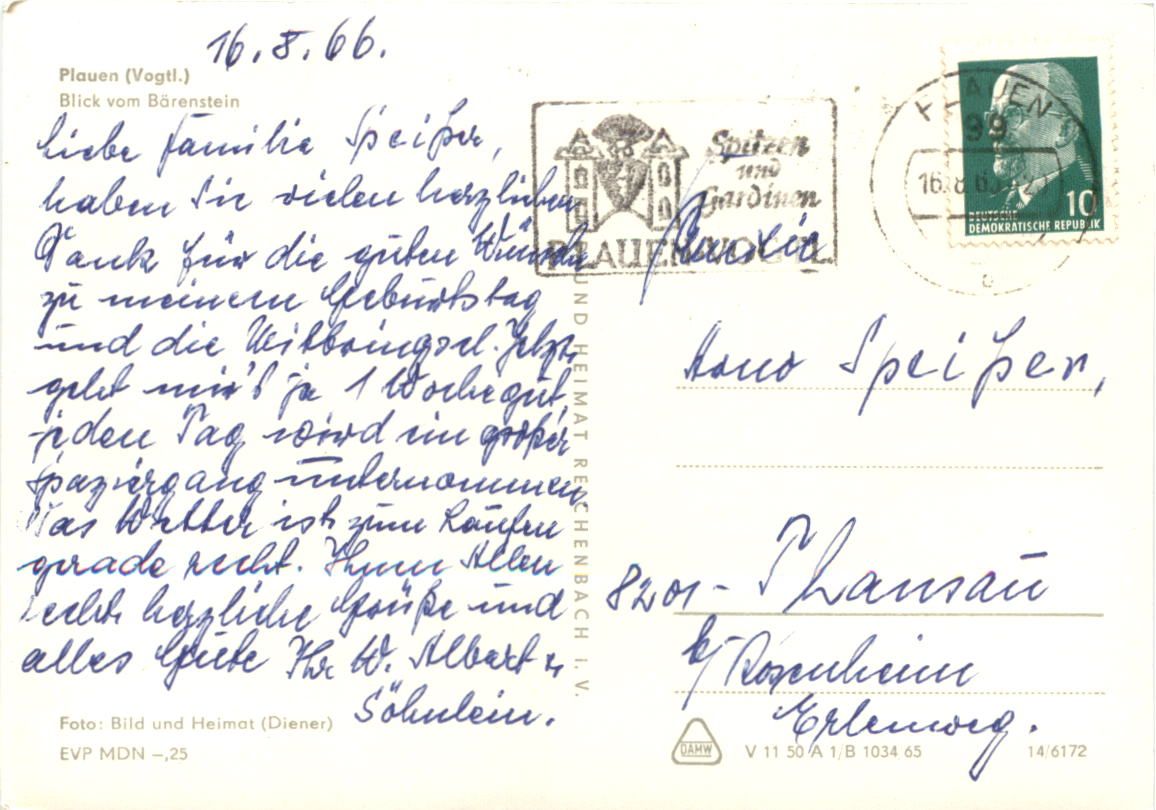 16.8.66.
Plauen (Vogtl.)
Blick vom Bärenstein
Liebe Familie Speißer,
haben Sie vielen herzlichen
Dank für die guten Wünsche
zu meinem Geburtstag
und die Mitbringsel. Jetzt
geht mir's ja 1 Woche gut,
jeden Tag wird ein großer
Spaziergang unternommen.
Das Wetter ist zum Laufen
gerade recht. Ihnen Allen
recht herzliche Grüße und
alles Gute Ihr W. Albert u.
Söhnlein.
Foto: Bild und Heimat (Diener)
EVP MDN –,25
UND HEIMAT REICHENBACH I. V.
Spitzen
und
Gardinen
PLAUEN VOGTL
PLAUEN
99
16.8.66
10
DEUTSCHE
DEMOKRATISCHE REPUBLIK
Familie
Arno Speißer,
8201- Thansau
b/Rosenheim
Erlenweg.
DAMW
V 11 50 A 1/B 1034 65
14/6172